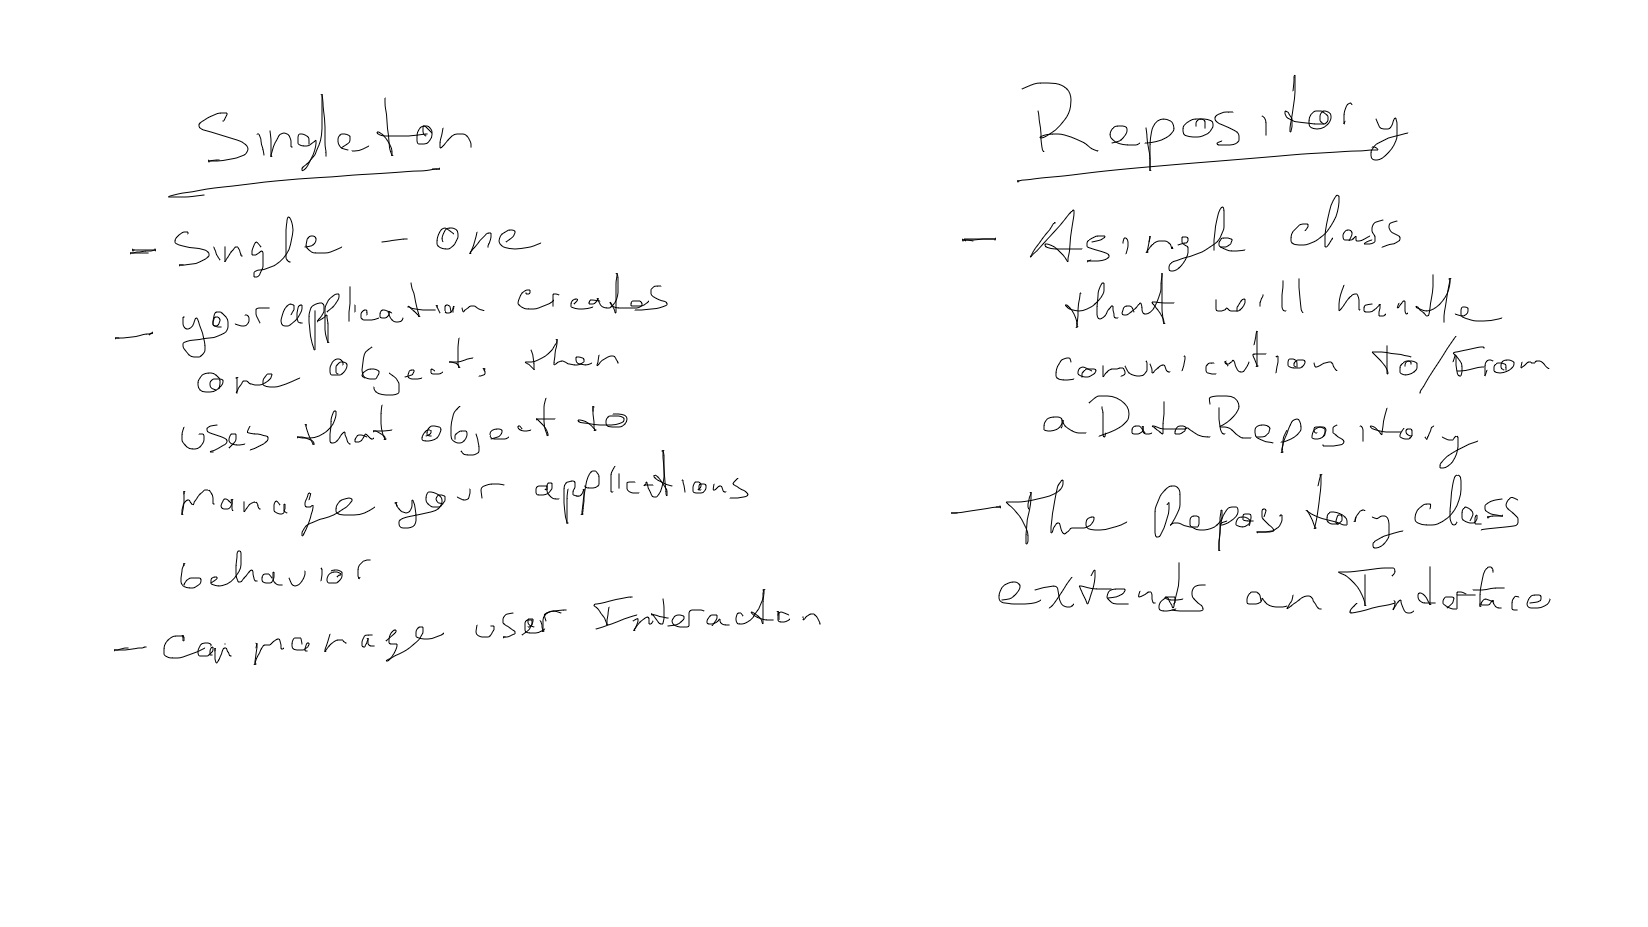 Singleton
- Single - one
- your application creates
one object, then
uses that object to
manage your applications
behavior
- Can manage user Interaction
Repository
- A single class
that will handle
comunication to/From
a Data Repository
- The Repository class
extends an Interface